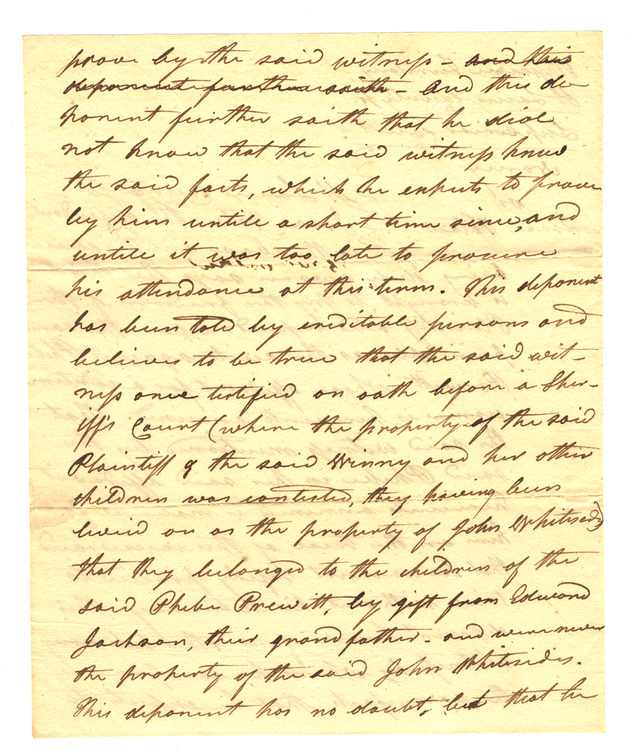 prove by the said witness - and this
deponent further saith - and this de-
ponent further saith that he did
not know that the said witness knew
the said facts, which he expects to prove
by him untile a short time since, and
untile it was too late to procure
his attendance at this term. This deponent
has been told by creditable persons and
believes to be true that the said wit-
ness once testified on oath before a Sher-
iff's Court (where the property of the said
Plaintiff & the said Winny and her other
children was contested, they having been
levied on as the property of John Whitesides)
that they belonged to the children of the
said Phebe Prewitt, by gift from Edward
Jackson, their grandfather - and were never
the property of the said John Whitesides.
This deponent has no doubt, but that he